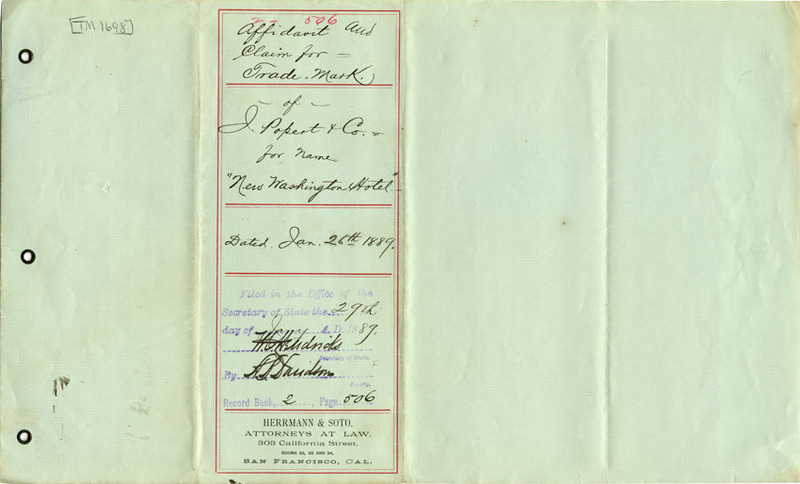 TM 1698
506
Affidavit and
Claim for
Trade Mark.
of
J. Popert & Co.
for name
"New Washington Hotel"
Dated Jan. 26th 1889.
Filed in the Office of the
Secretary of State the 29th
day of Jany A.D. 1889.
W C Hendricks
Secretary of State
By A L Davidson
Deputy
Record Book, 2, Page 506
HERRMANN & SOTO,
ATTORNEYS AT LAW,
303 California Street,
ROOMS 22, 23 AND 24,
SAN FRANCISCO, CAL.